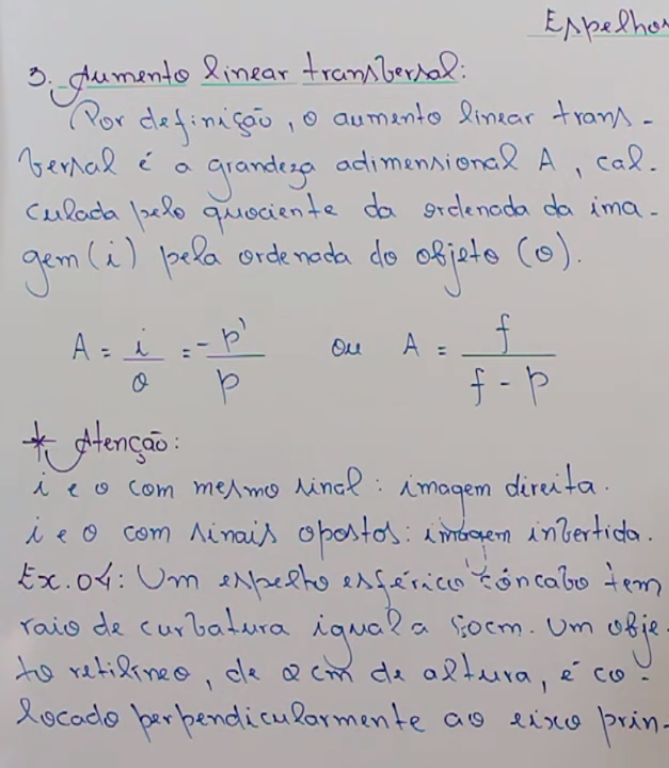 Espelhos
3. Aumento linear transversal:
Por definição, o aumento linear trans-
versal é a grandeza adimensional A, cal-
culada pelo quociente da ordenada da ima-
gem (i) pela ordenada do objeto (o).
A = i/o = -p'/p ou A = f/f - p
* Atenção:
i e o com mesmo sinal: imagem direita.
i e o com sinais opostos: imagem invertida.
Ex. 04: Um espelho esférico côncavo tem
raio de curvatura igual a 50cm. Um obje
to retilíneo, de 2 cm de altura, é co-
locado perpendicularmente ao eixo prin-